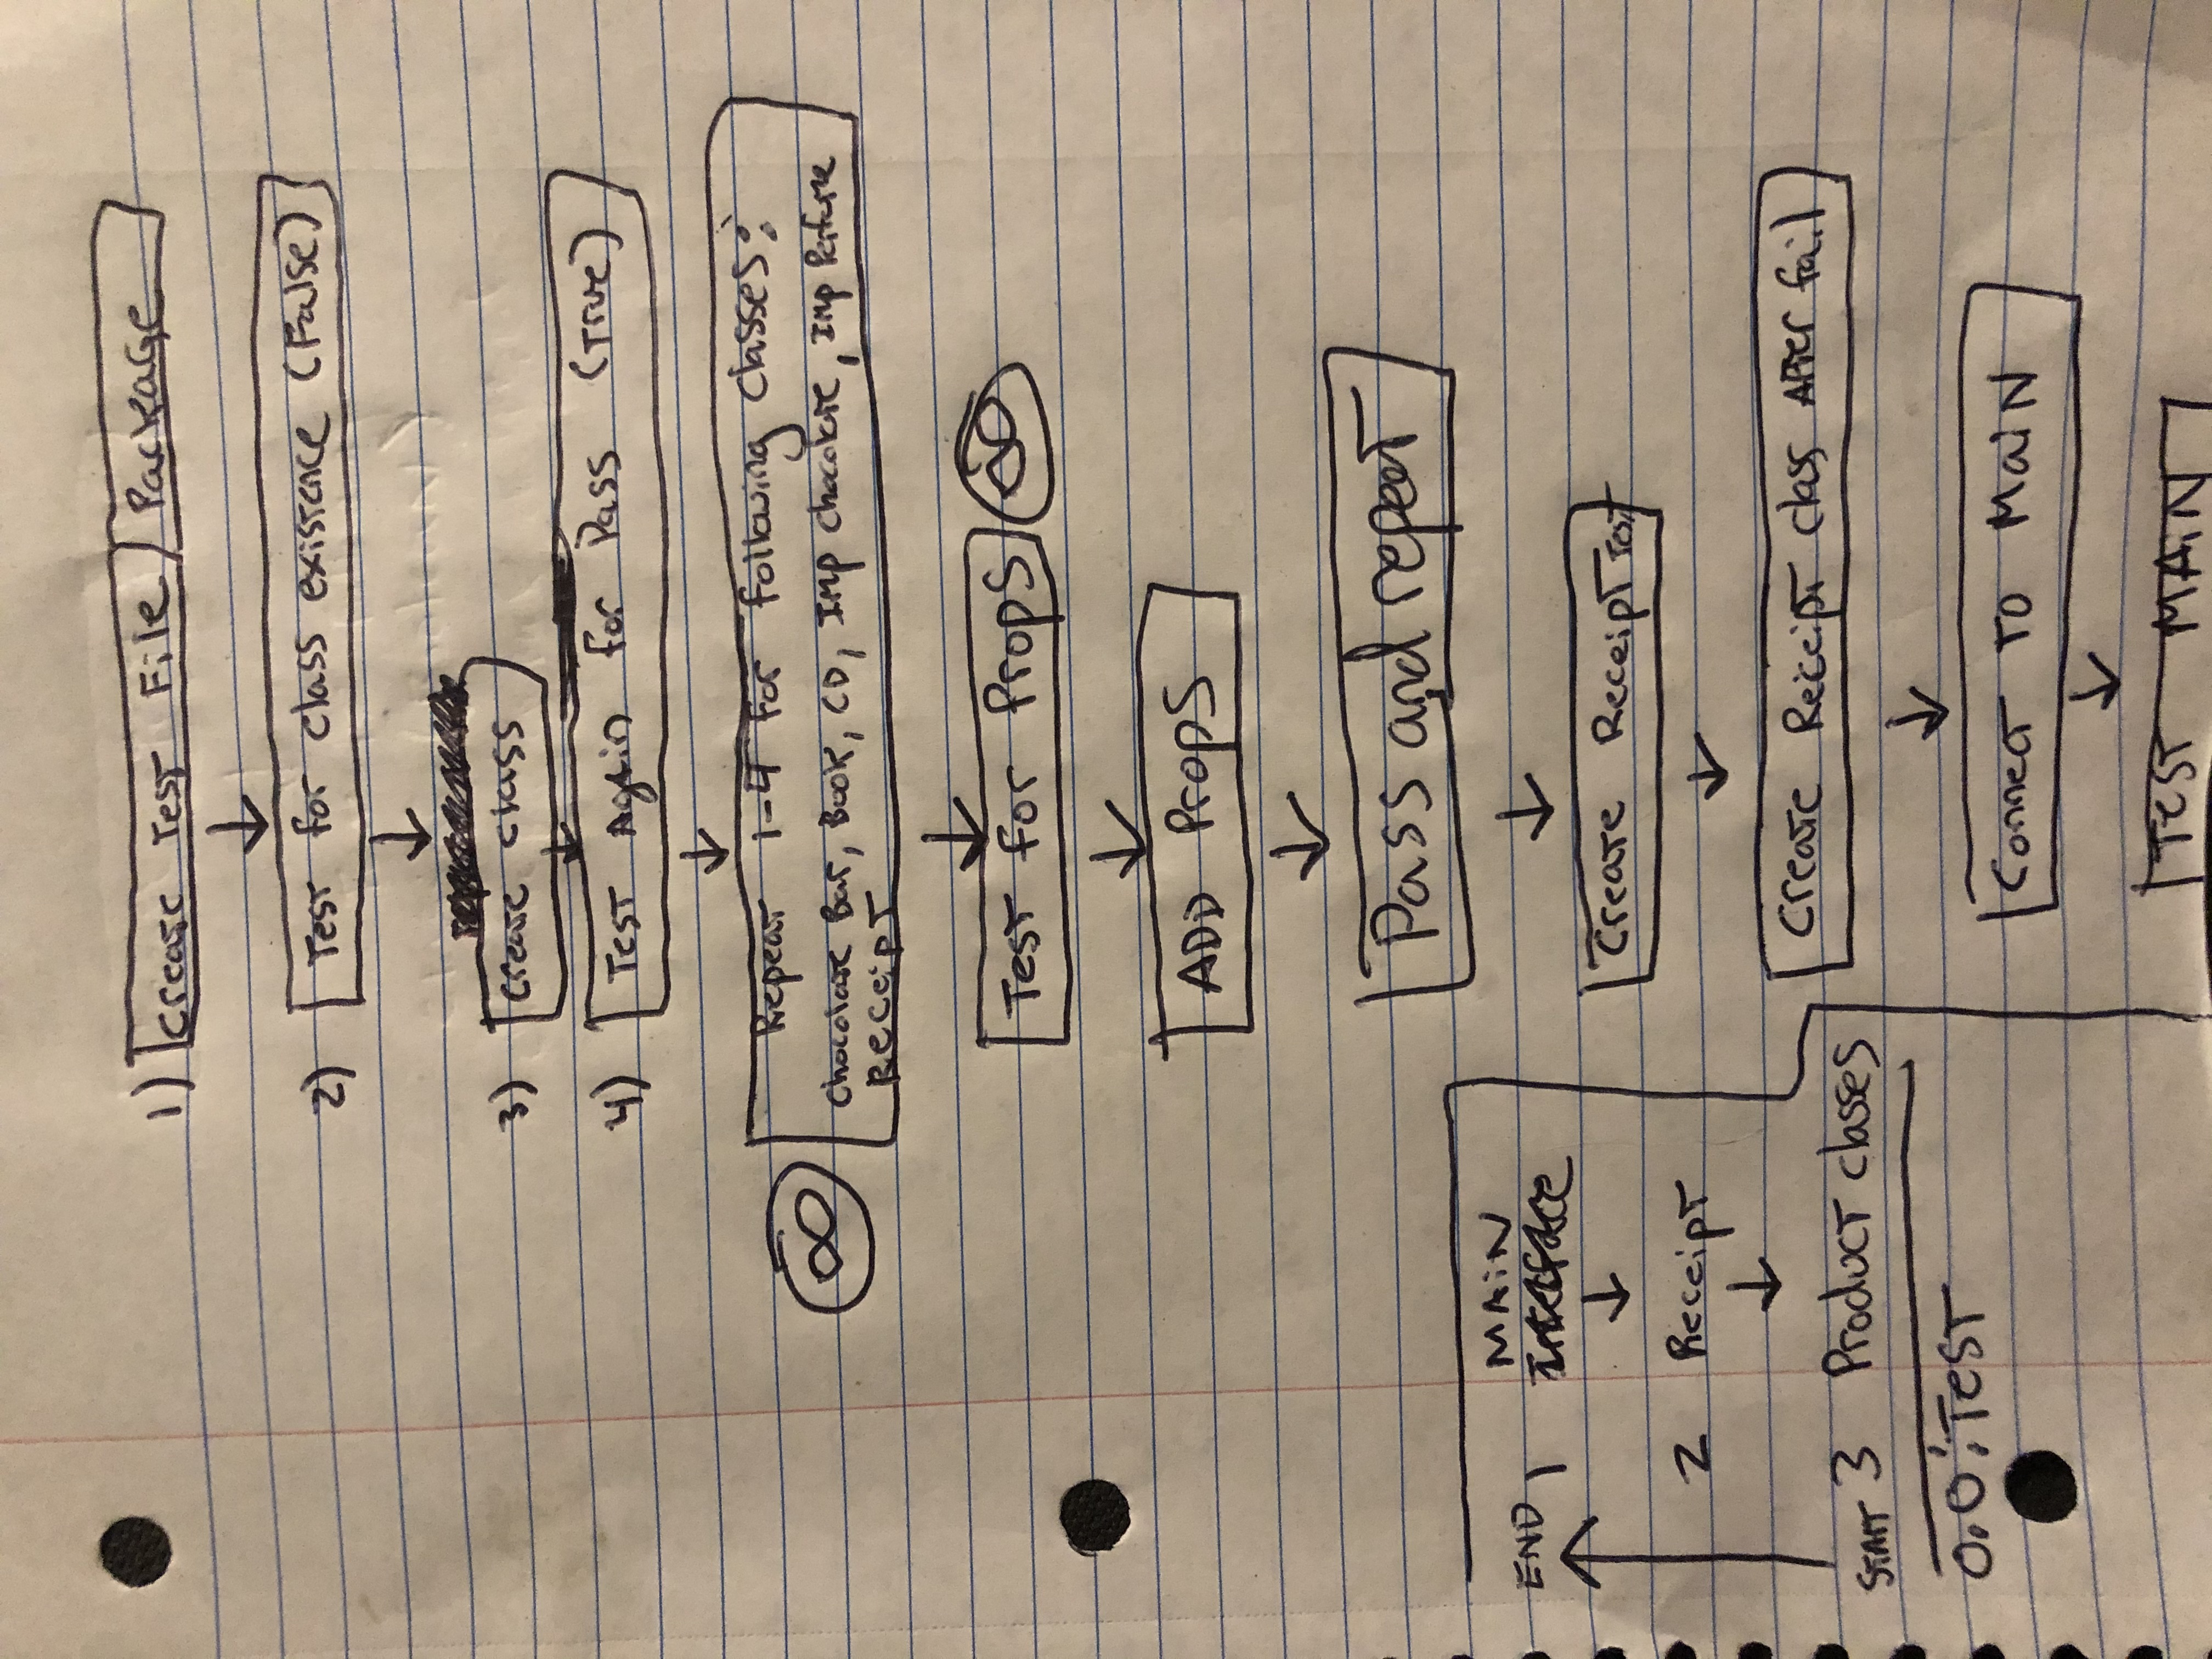 1) Create Test File / Package
2) Test for class existence (False)
3) Create class
4) Test Again for Pass (True)
Repeat 1-4 for following classes:
∞
Chocolate Bar, Book, CD, Imp chocolate, Imp Perfume
Receipt
Test for Props ∞
ADD Props
Pass and repeat
Create Receipt Test
Create Receipt class After fail
Connect to Main
Test MAIN
MAIN
END 1 Interface
2 Receipt
START 3 Product classes
0.0: Test